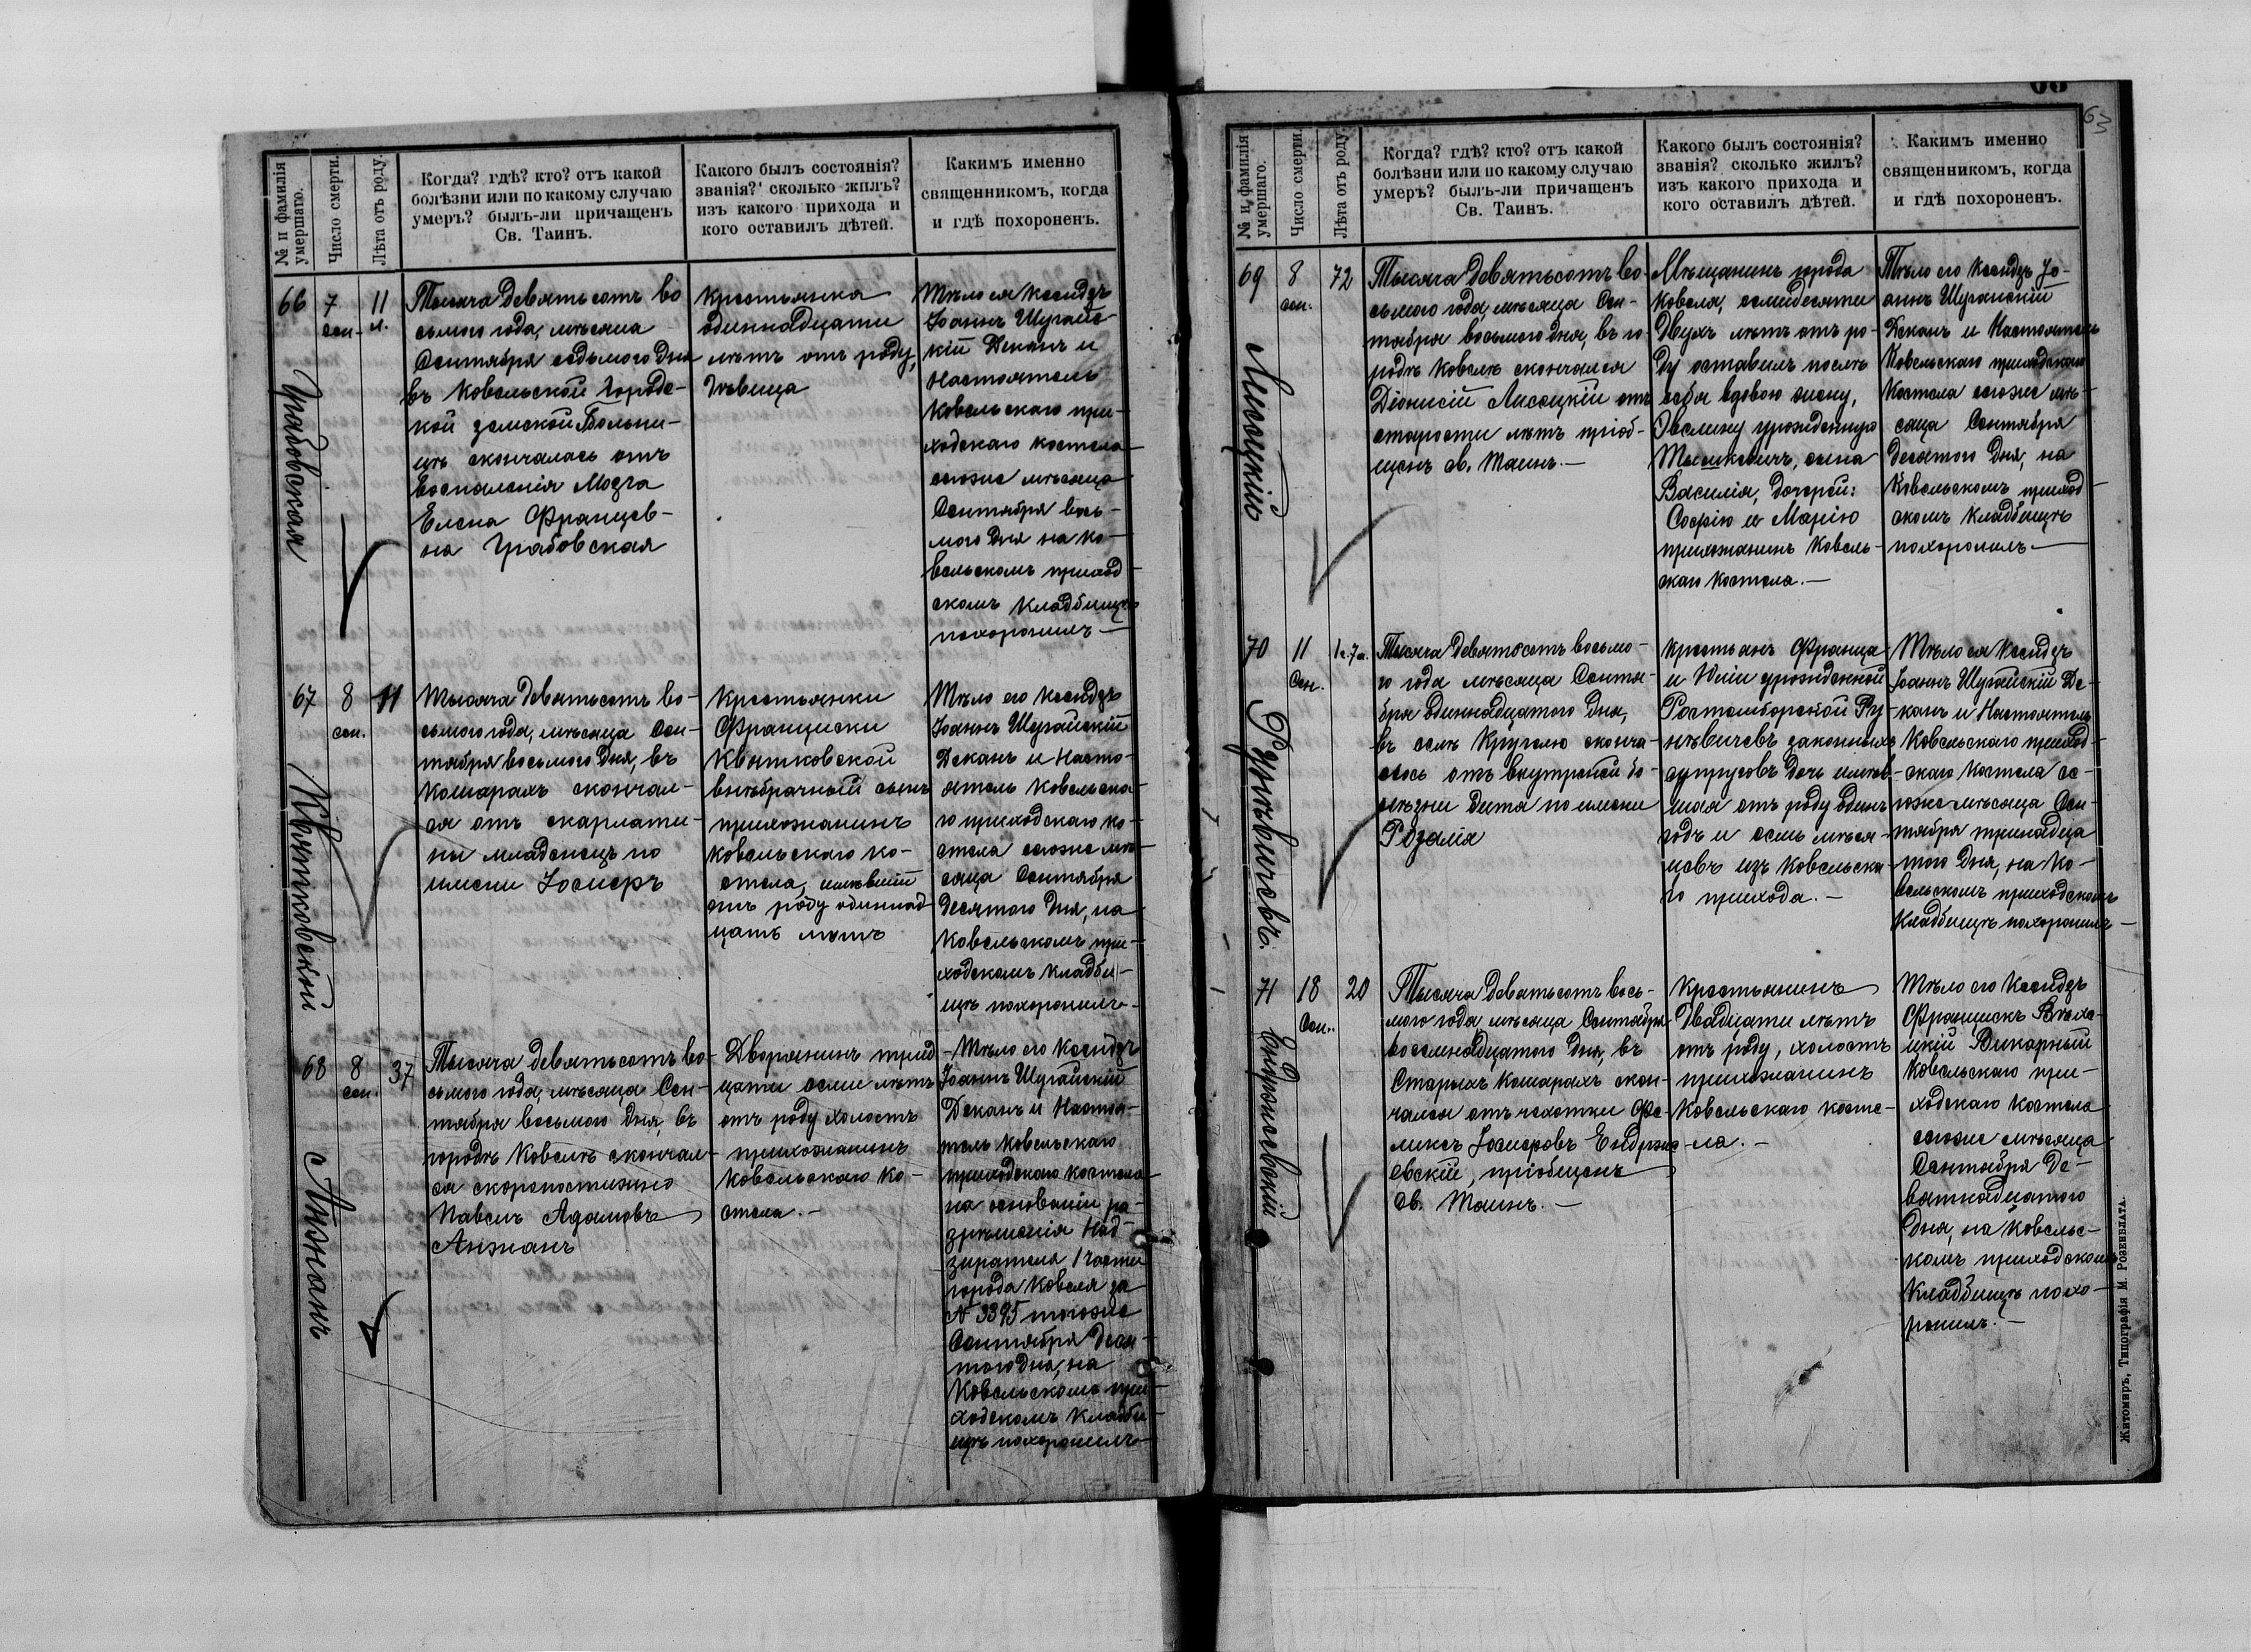 № и фамилія умершаго.
Число смерти.
Лѣта отъ роду.
Когда? гдѣ? кто? отъ какой
болѣзни или по какому случаю
умеръ? былъ-ли причащенъ
Св. Таинъ.
Какого былъ состоянія?
званія? сколько жилъ?
изъ какого прихода и
кого оставилъ дѣтей.
Какимъ именно
священникомъ, когда
и гдѣ похороненъ.
66
Грабовская
7
сен.
11
л.
Тысяча девятьсотъ во
сьмого года, мѣсяца
Сентября седьмого дня
въ Ковельской городс-
кой земской больни-
цѣ скончалась отъ
воспаленія мозга
Елена Францов-
на Грабовская
Крестьянка
одиннадцати
лѣтъ отъ роду,
дѣвица
Тѣло ея Ксендзъ
Іоаннъ Шугайс-
кій Деканъ и
Настоятель
Ковельскаго при-
ходскаго костела
сегоже мѣсяца
Сентября вось-
мого дня на Ко-
вельскомъ приход-
скомъ кладбищѣ
похоронилъ
67
Квятковскій
8
сен.
11
Тысяча девятьсотъ во-
сьмого года, мѣсяца Сен-
тября восьмого дня, въ
Кошарахъ скончал-
ся отъ скарлати-
ны младенецъ по
имени Іосифъ
Крестьянки
Франциски
Квятковской
внѣбрачный сынъ
прихожанинъ
Ковельскаго ко-
стела, имѣвшій
отъ роду одиннад
цать лѣтъ
Тѣло его Ксендзъ
Іоаннъ Шугайскій
Деканъ и Насто-
ятель Ковельска-
го приходскаго ко-
стела сегоже мѣ-
сяца Сентября
десятого дня, на
Ковельскомъ при-
ходскомъ кладби-
щѣ похоронилъ
68
Анжанъ
8
сен.
37
Тысяча девятьсотъ во-
сьмого года, мѣсяца Сен-
тября восьмого дня, въ
городѣ Ковелѣ скончал-
ся скоропостижно
Павелъ Адамовъ
Анжанъ
Дворянинъ трид
цати семи лѣтъ
отъ роду холостъ
прихожанинъ
Ковельскаго ко-
стела.
Тѣло его Ксендзъ
Іоаннъ Шугайскій
Деканъ и Настоя-
тель Ковельскаго
приходскаго костела
на основаніи ра-
зрѣшенія Над-
зирателя 1 части
города Ковеля за
№ 3395 тогоже
Сентября деся-
того дня, на
Ковельскомъ при-
ходскомъ кладби-
щѣ похоронилъ
63
№ и фамилія умершаго.
Число смерти.
Лѣта отъ роду.
Когда? гдѣ? кто? отъ какой
болѣзни или по какому случаю
умеръ? былъ-ли причащенъ
Св. Таинъ.
Какого былъ состоянія?
званія? сколько жилъ?
изъ какого прихода и
кого оставилъ дѣтей.
Какимъ именно
священникомъ, когда
и гдѣ похороненъ.
69
Лисецкій
8
сен.
72
Тысяча девятьсотъ во-
сьмого года, мѣсяца Сен-
тября восьмого дня, въ го-
родѣ Ковелѣ скончался
Діонисій Лисецкій отъ
старости лѣтъ пріоб-
щенъ св. Таинъ.
Мѣщанинъ города
Ковеля, семидесяти
двухъ лѣтъ отъ ро-
ду оставилъ послѣ
себя вдовою жену,
Эвелину урожденную
Тышкевичъ, сына
Василія, дочерей:
Софію и Марію
прихожанинъ Ковель-
скаго костела.
Тѣло его Ксендзъ Іо-
аннъ Шугайскій
Деканъ и Настоятель
Ковельскаго приходскаго
костела сегоже мѣ-
сяца Сентября
десятого дня, на
Ковельскомъ приход-
скомъ кладбищѣ
похоронилъ
70
Рунѣвичевъ.
11
Сен.
1г. 7м.
Тысяча девятьсотъ восьмо-
го года мѣсяца Сентя-
бря одиннадцатого дня,
въ селѣ Кругелю сконча-
лось отъ внутренней бо-
лѣзни дитя по имени
Розалія
Крестьянъ Франца
и Юліи урожденной
Ру-
нѣвичевъ законныхъ
супруговъ дочь имѣв-
шая отъ роду одинъ
годъ и семь мѣся-
цевъ изъ Ковельска
го прихода.
Тѣло ея Ксендзъ
Іоаннъ Шугайскій Де-
канъ и Настоятель
Ковельскаго приход-
скаго костела се-
гоже мѣсяца Сен-
тября тринадца
того дня, на Ко-
вельскомъ приходскомъ
кладбищѣ похоронилъ
71
Ендржеевскій
18
Сен.
20
Тысяча девятьсотъ вось-
мого года мѣсяца Сентября
восемнадцатого дня, въ
Старыхъ Кошарахъ скон-
чался отъ чахотки Фе-
ликсъ Іосифовъ Ендрже-
евскій, пріобщенъ
св. Таинъ.
Крестьянинъ
двадцати лѣтъ
отъ роду, холостъ
прихожанинъ
Ковельскаго косте-
ла.
Тѣло его Ксендзъ
Францискъ
Викарный
Ковельскаго при-
ходскаго костела
сегоже мѣсяца
Сентября де-
вятнадцатого
дня, на Ковельс-
комъ приходскомъ
кладбищѣ похо-
ронилъ.
Житомиръ, Типографія М. Розенблата.